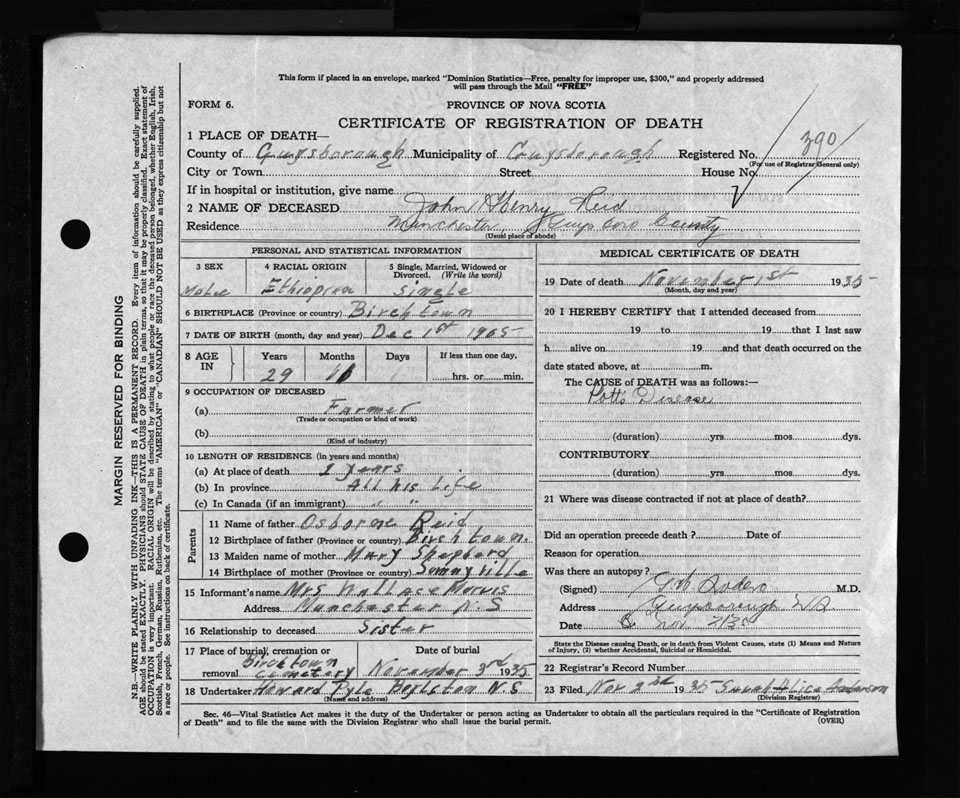 This form if placed in an envelope, marked "Dominion Statistics—Free, penalty for improper use, $300," and properly addressed
will pass through the Mail "FREE"
FORM 6.
PROVINCE OF NOVA SCOTIA
CERTIFICATE OF REGISTRATION OF DEATH
1 PLACE OF DEATH—
County of Guysborough Municipality of Guysborough Registered No. 390
(For use of Registrar General only)
City or Town Street House No.
If in hospital or institution, give name
2 NAME OF DECEASED John Henry Reid
Residence Manchester Guysboro County
(Usual place of abode)
PERSONAL AND STATISTICAL INFORMATION
3 SEX 4 RACIAL ORIGIN 5 Single, Married, Widowed or
Divorced. (Write the word)
Male Ethiopian Single
6 BIRTHPLACE (Province or country) Birchtown
7 DATE OF BIRTH (month, day and year) Dec 1st 1905
8 AGE IN Years Months Days If less than one day,
29 11 hrs. or min.
9 OCCUPATION OF DECEASED
(a) Farmer
(Trade or occupation or kind of work)
(b)
(Kind of industry)
10 LENGTH OF RESIDENCE (in years and months)
(a) At place of death years
(b) In province All his Life
(c) In Canada (if an immigrant) "
Parents
11 Name of father Osborne Reid
12 Birthplace of father (Province or country) Birchtown.
13 Maiden name of mother Mary Shepherd
14 Birthplace of mother (Province or country) Sunnyville
15 Informant's name Mrs Wallace
Address Manchester N.S
16 Relationship to deceased Sister
17 Place of burial, cremation or removal Date of burial
Birchtown
Cemetery November 3rd 1935
18 Undertaker Howard Pyle Boylston N S
(Name and address)
MEDICAL CERTIFICATE OF DEATH
19 Date of death November 1st 1935
(Month, day and year)
20 I HEREBY CERTIFY that I attended deceased from
19 to 19 that I last saw
h alive on 19 and that death occurred on the
date stated above, at m.
The CAUSE of DEATH was as follows:—
Potts Disease
(duration) yrs. mos. dys.
CONTRIBUTORY
(duration) yrs. mos. dys.
21 Where was disease contracted if not at place of death?
Did an operation precede death? Date of
Reason for operation
Was there an autopsy?
(Signed) M.D.
Address Guysborough NS
Date Nov.
State the Disease causing Death, or in death from Violent Causes, state (1) Means and Nature
of Injury, (2) whether Accidental, Suicidal or Homicidal.
22 Registrar's Record Number
23 Filed Nov 2nd 1935 Sarah Alice Anderson
(Division Registrar)
Sec. 46—Vital Statistics Act makes it the duty of the Undertaker or person acting as Undertaker to obtain all the particulars required in the "Certificate of Registration
of Death" and to file the same with the Division Registrar who shall issue the burial permit.
(OVER)
MARGIN RESERVED FOR BINDING
N.B.—WRITE PLAINLY WITH UNFADING INK—THIS IS A PERMANENT RECORD. Every item of information should be carefully supplied.
AGE should be stated EXACTLY. PHYSICIANS should STATE CAUSE OF DEATH in plain terms, so that it may be properly classified. Exact statement of
OCCUPATION is very important. RACIAL ORIGIN will be described by stating to what people or race the deceased person belonged, whether English, Irish,
Scottish, French, German, Russian, Ruthenian, etc. The terms "AMERICAN" or "CANADIAN" SHOULD NOT BE USED as they express citizenship but not
a race or people. See instructions on back of certificate.